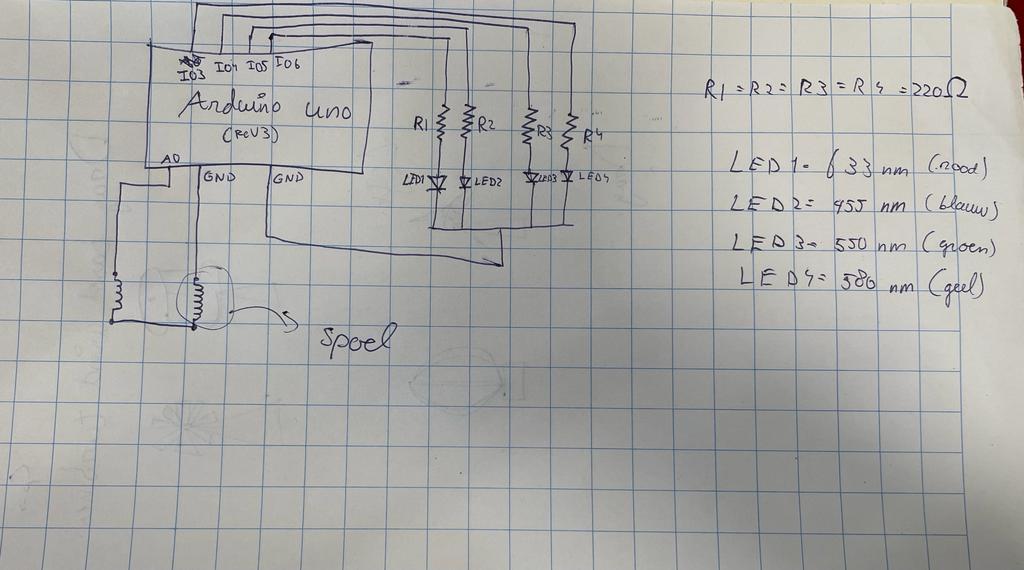 IO3 IO4 IO5 IO6
Arduino uno
(Rev3)
A0
GND
GND
R1
R2
R3
R4
LED1
LED2
LED3
LED4
Spoel
R1 = R2 = R3 = R4 = 220Ω
LED 1= 633 nm (rood)
LED 2= 455 nm (blauw)
LED 3= 550 nm (groen)
LED 4= 586 nm (geel)